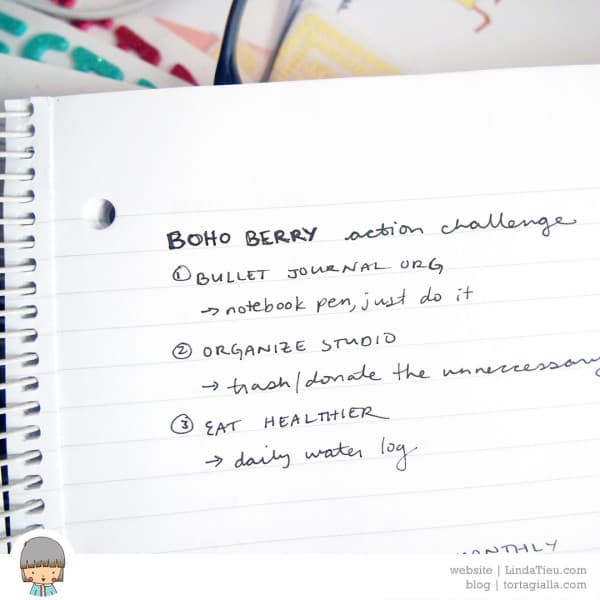 BOHO BERRY action challenge
① BULLET JOURNAL ORG
→ notebook pen, just do it
② ORGANIZE STUDIO
→ trash/donate the unneccessary
③ EAT HEALTHIER
→ daily water log
MONTHLY
website | LindaTieu.com
blog | tortagialla.com